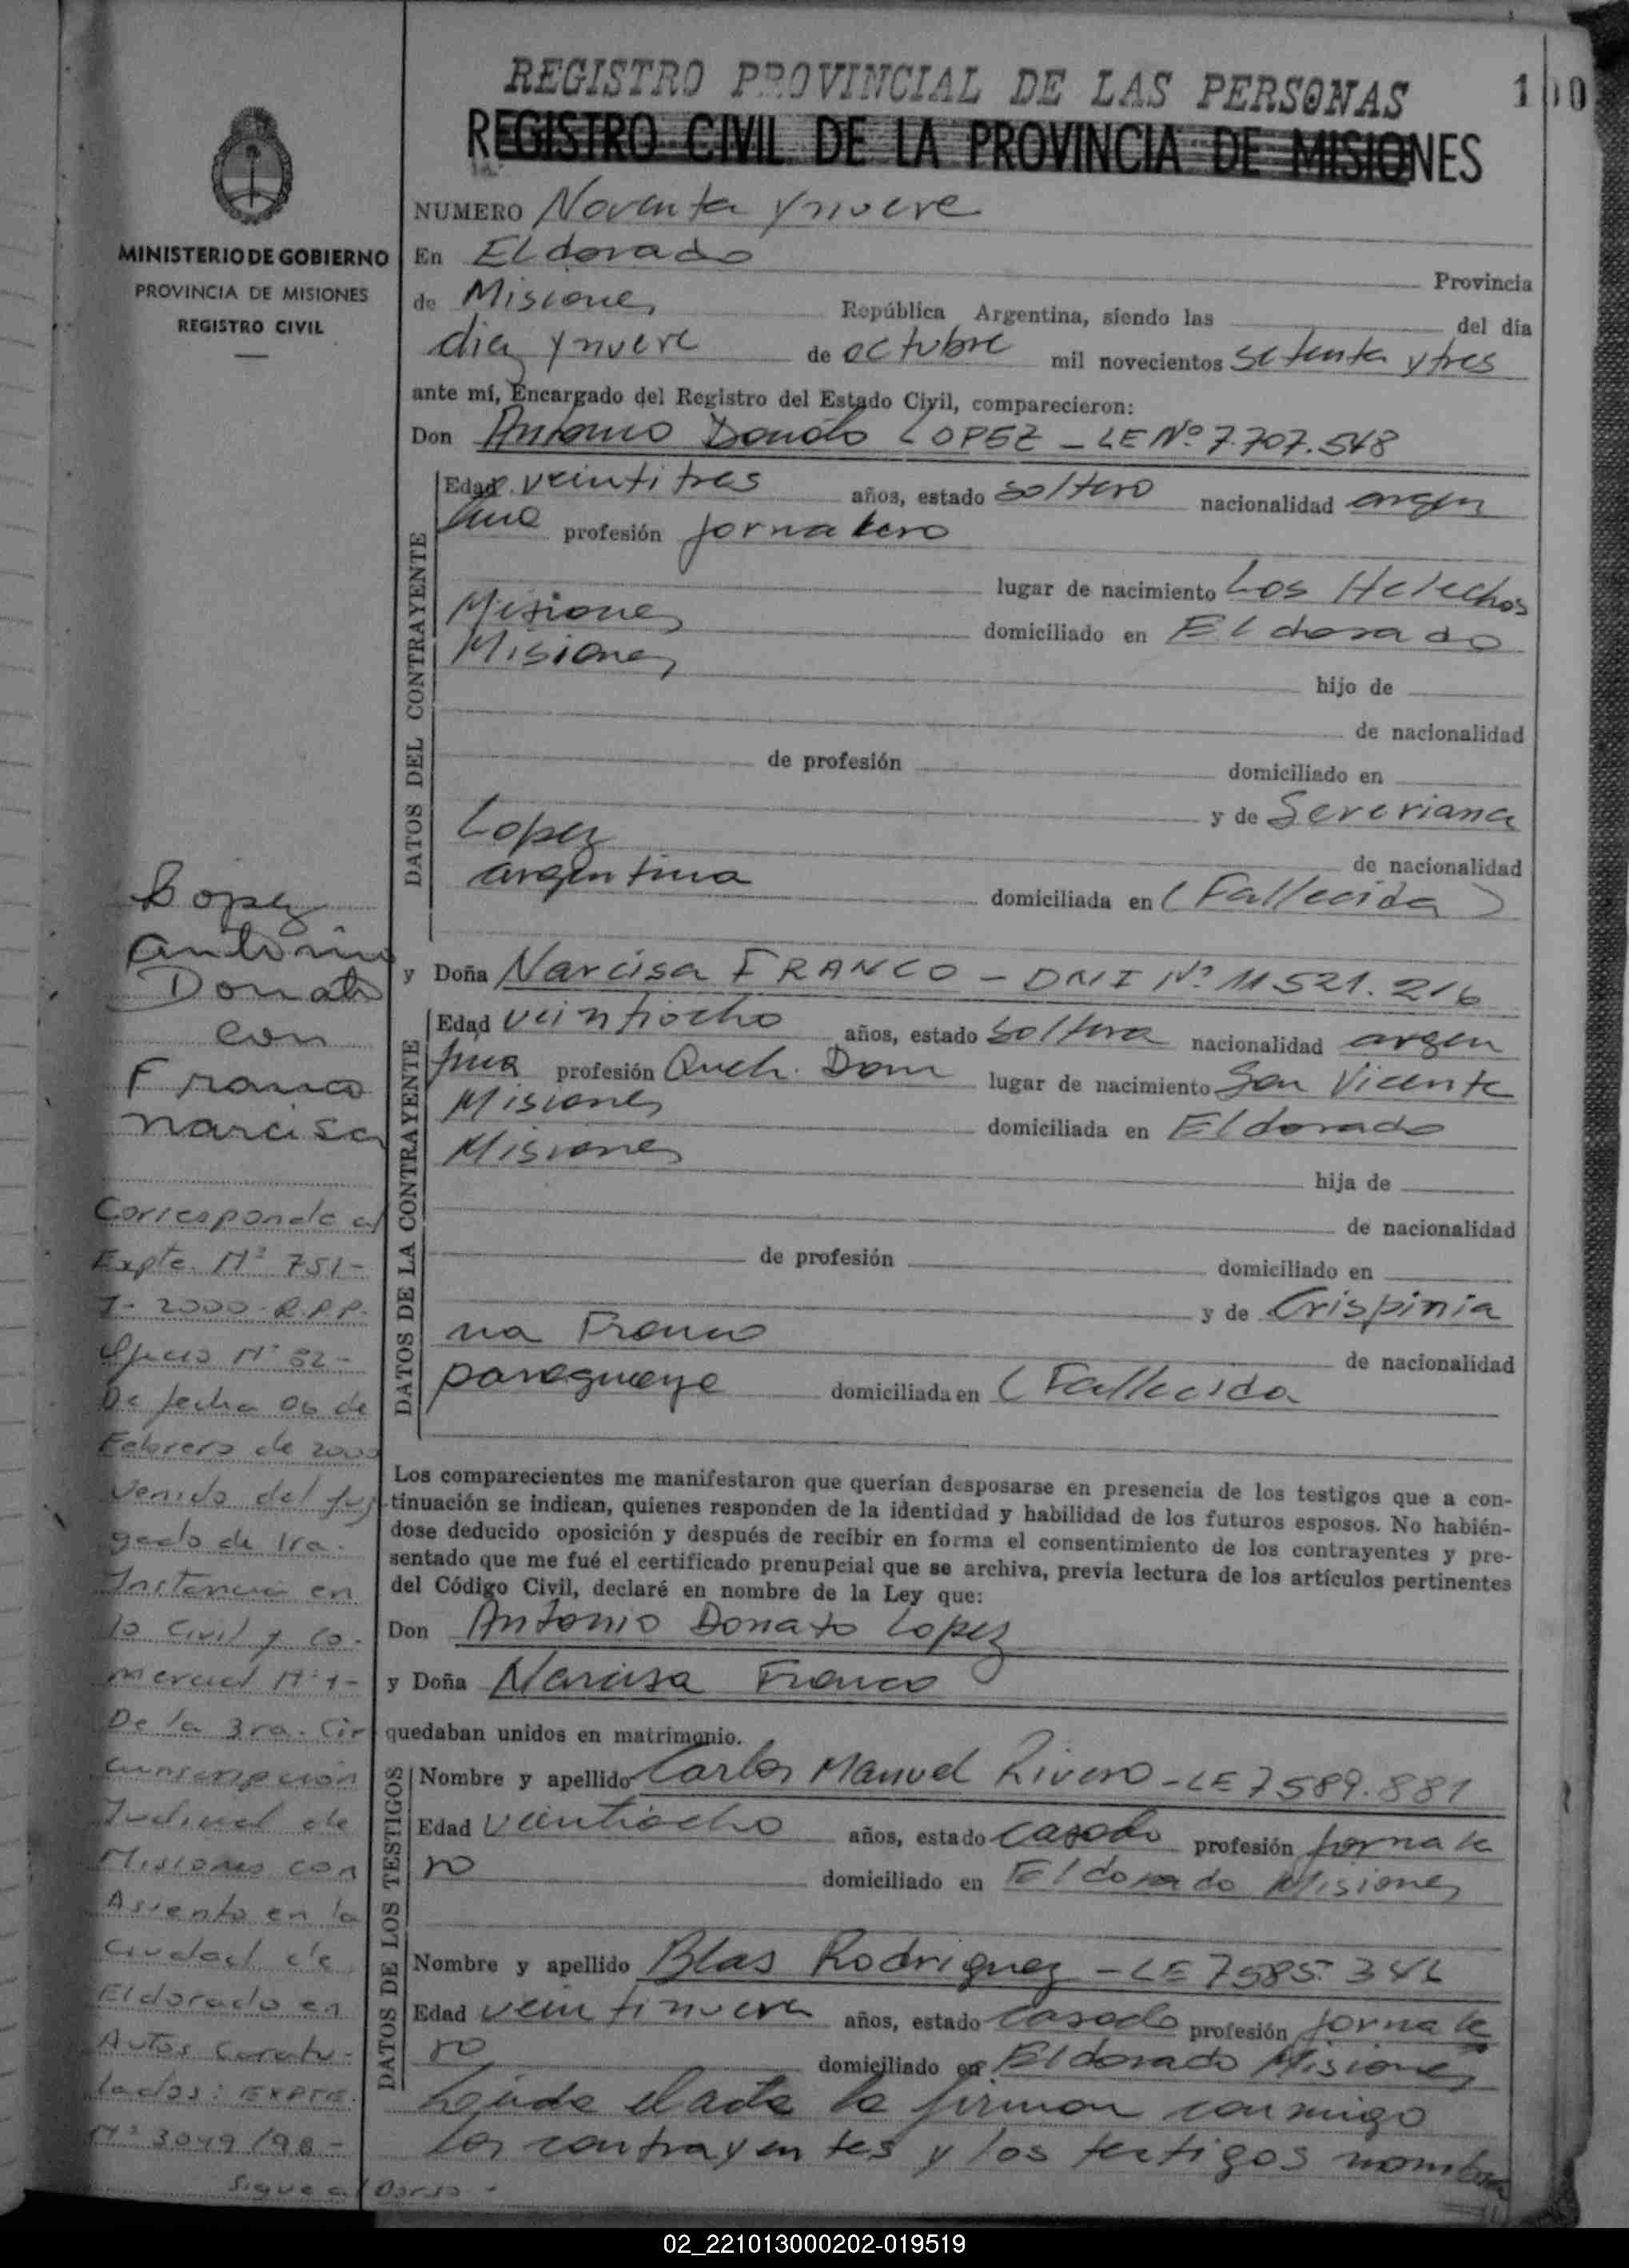 REGISTRO PROVINCIAL DE LAS PERSONAS
100
REGISTRO CIVIL DE LA PROVINCIA DE MISIONES
MINISTERIO DE GOBIERNO
PROVINCIA DE MISIONES
REGISTRO CIVIL
NUMERO Noventa y nueve
En Eldorado Provincia
de Misiones República Argentina, siendo las del día
diez y nueve de octubre mil novecientos setenta y tres
ante mí, Encargado del Registro del Estado Civil, comparecieron:
Don Antonio Donato LOPEZ - LE Nº 7.707.548
DATOS DEL CONTRAYENTE
Edad veintitres años, estado soltero nacionalidad argen
tina profesión jornalero
lugar de nacimiento Los Helechos
Misiones domiciliado en Eldorado
Misiones hijo de
de nacionalidad
de profesión domiciliado en
y de Severiana
Lopez de nacionalidad
argentina domiciliada en (Fallecida)
y Doña Narcisa FRANCO - DNI Nº 11521.216
DATOS DE LA CONTRAYENTE
Edad veintiocho años, estado soltera nacionalidad argen
tina profesión Queh. Dom lugar de nacimiento San Vicente
Misiones domiciliada en Eldorado
Misiones hija de
de nacionalidad
de profesión domiciliado en
y de Crispinia
na Franco de nacionalidad
paraguaya domiciliada en (Fallecida
Los comparecientes me manifestaron que querían desposarse en presencia de los testigos que a con-
tinuación se indican, quienes responden de la identidad y habilidad de los futuros esposos. No habién-
dose deducido oposición y después de recibir en forma el consentimiento de los contrayentes y pre-
sentado que me fué el certificado prenupcial que se archiva, previa lectura de los artículos pertinentes
del Código Civil, declaré en nombre de la Ley que:
Don Antonio Donato Lopez
y Doña Narcisa Franco
quedaban unidos en matrimonio.
DATOS DE LOS TESTIGOS
Nombre y apellido Carlos Manuel Rivero - LE 7589.881
Edad veintiocho años, estado casado profesión jornale
ro domiciliado en Eldorado Misiones
Nombre y apellido Blas Rodriguez - LE 7585.346
Edad veintinueve años, estado casado profesión jornale
ro domiciliado en Eldorado Misiones
Leída el acta la firman conmigo
los contrayentes y los testigos nombra
Lopez
Antonio
Donato
con
Franco
Narcisa
Corresponde al
Expte. Nº 751-
J- 2000- R.P.P.
Oficio Nº 52-
De fecha 06 de
Febrero de 2000
venido del Juz
gado de 1ra.
Instancia en
lo Civil y Co-
mercial Nº 1-
De la 3ra. Cir
cunscripción
Judicial de
Misiones con
Asiento en la
Ciudad de
Eldorado en
Autos Caratu-
lados: EXPTE.
Nº 3049/98-
Sigue al Dorso -
02_221013000202-019519